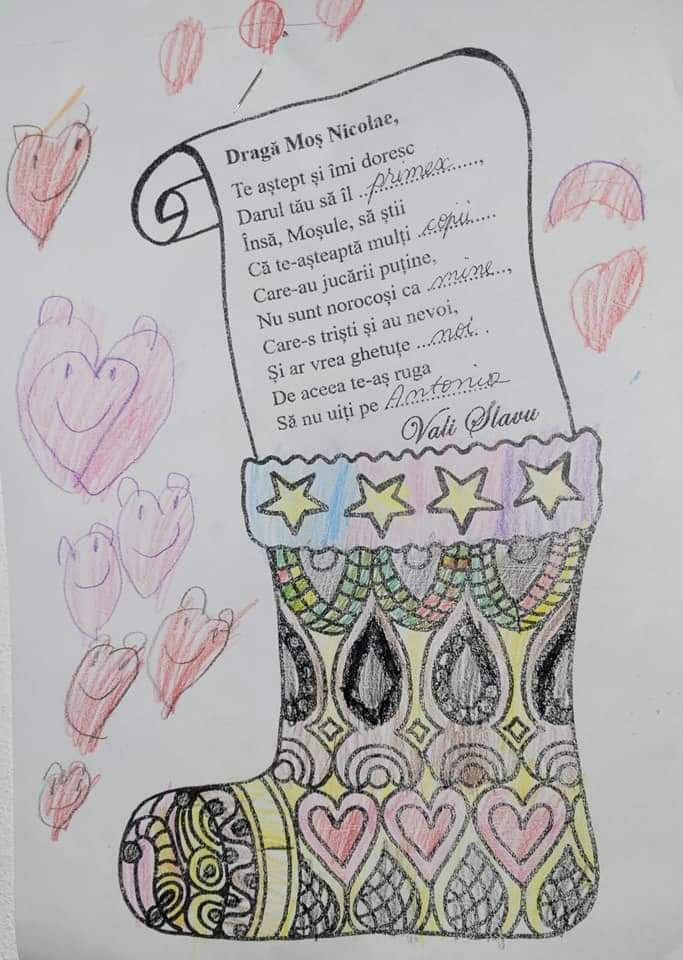 Dragă Moș Nicolae,
Te aștept și îmi doresc
Darul tău să îl ..primesc......,
Însă, Moșule, să știi
Că te-așteaptă mulți ..copii.....
Care-au jucării puține,
Nu sunt norocoși ca ..mine..,
Care-s triști și au nevoi,
Și ar vrea ghetuțe ...noi. .
De aceea te-aș ruga
Să nu uiți pe ..Antonia
Vali Slavu